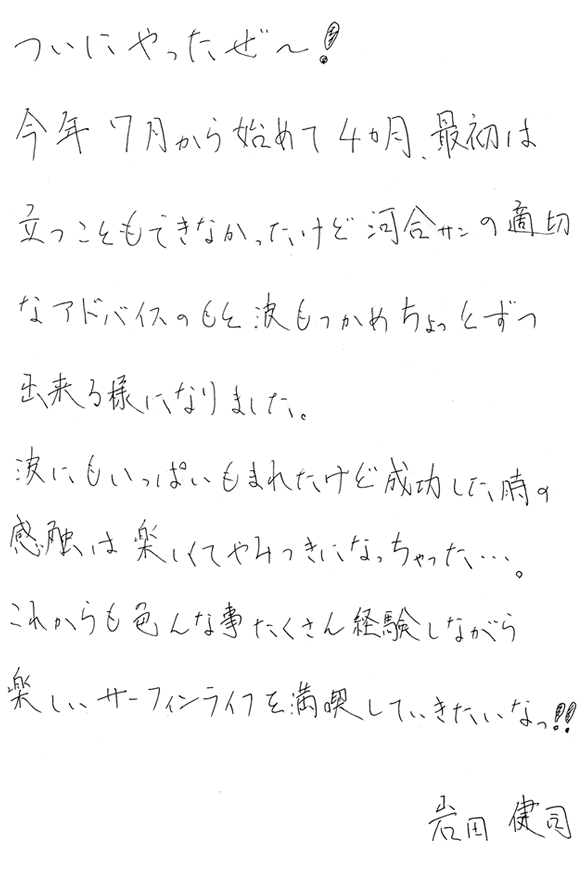 ついにやったぜ〜!
今年7月から始めて4カ月、最初は
立つこともできなかったけど河合サンの適切
なアドバイスのもと波もつかめちょっとずつ
出来る様になりました。
波にもいっぱいもまれたけど成功した時の
感触は楽しくてやみつきになっちゃった…。
これからも色んな事たくさん経験しながら
楽しいサーフィンライフを満喫していきたいなっ!!
岩田 健司